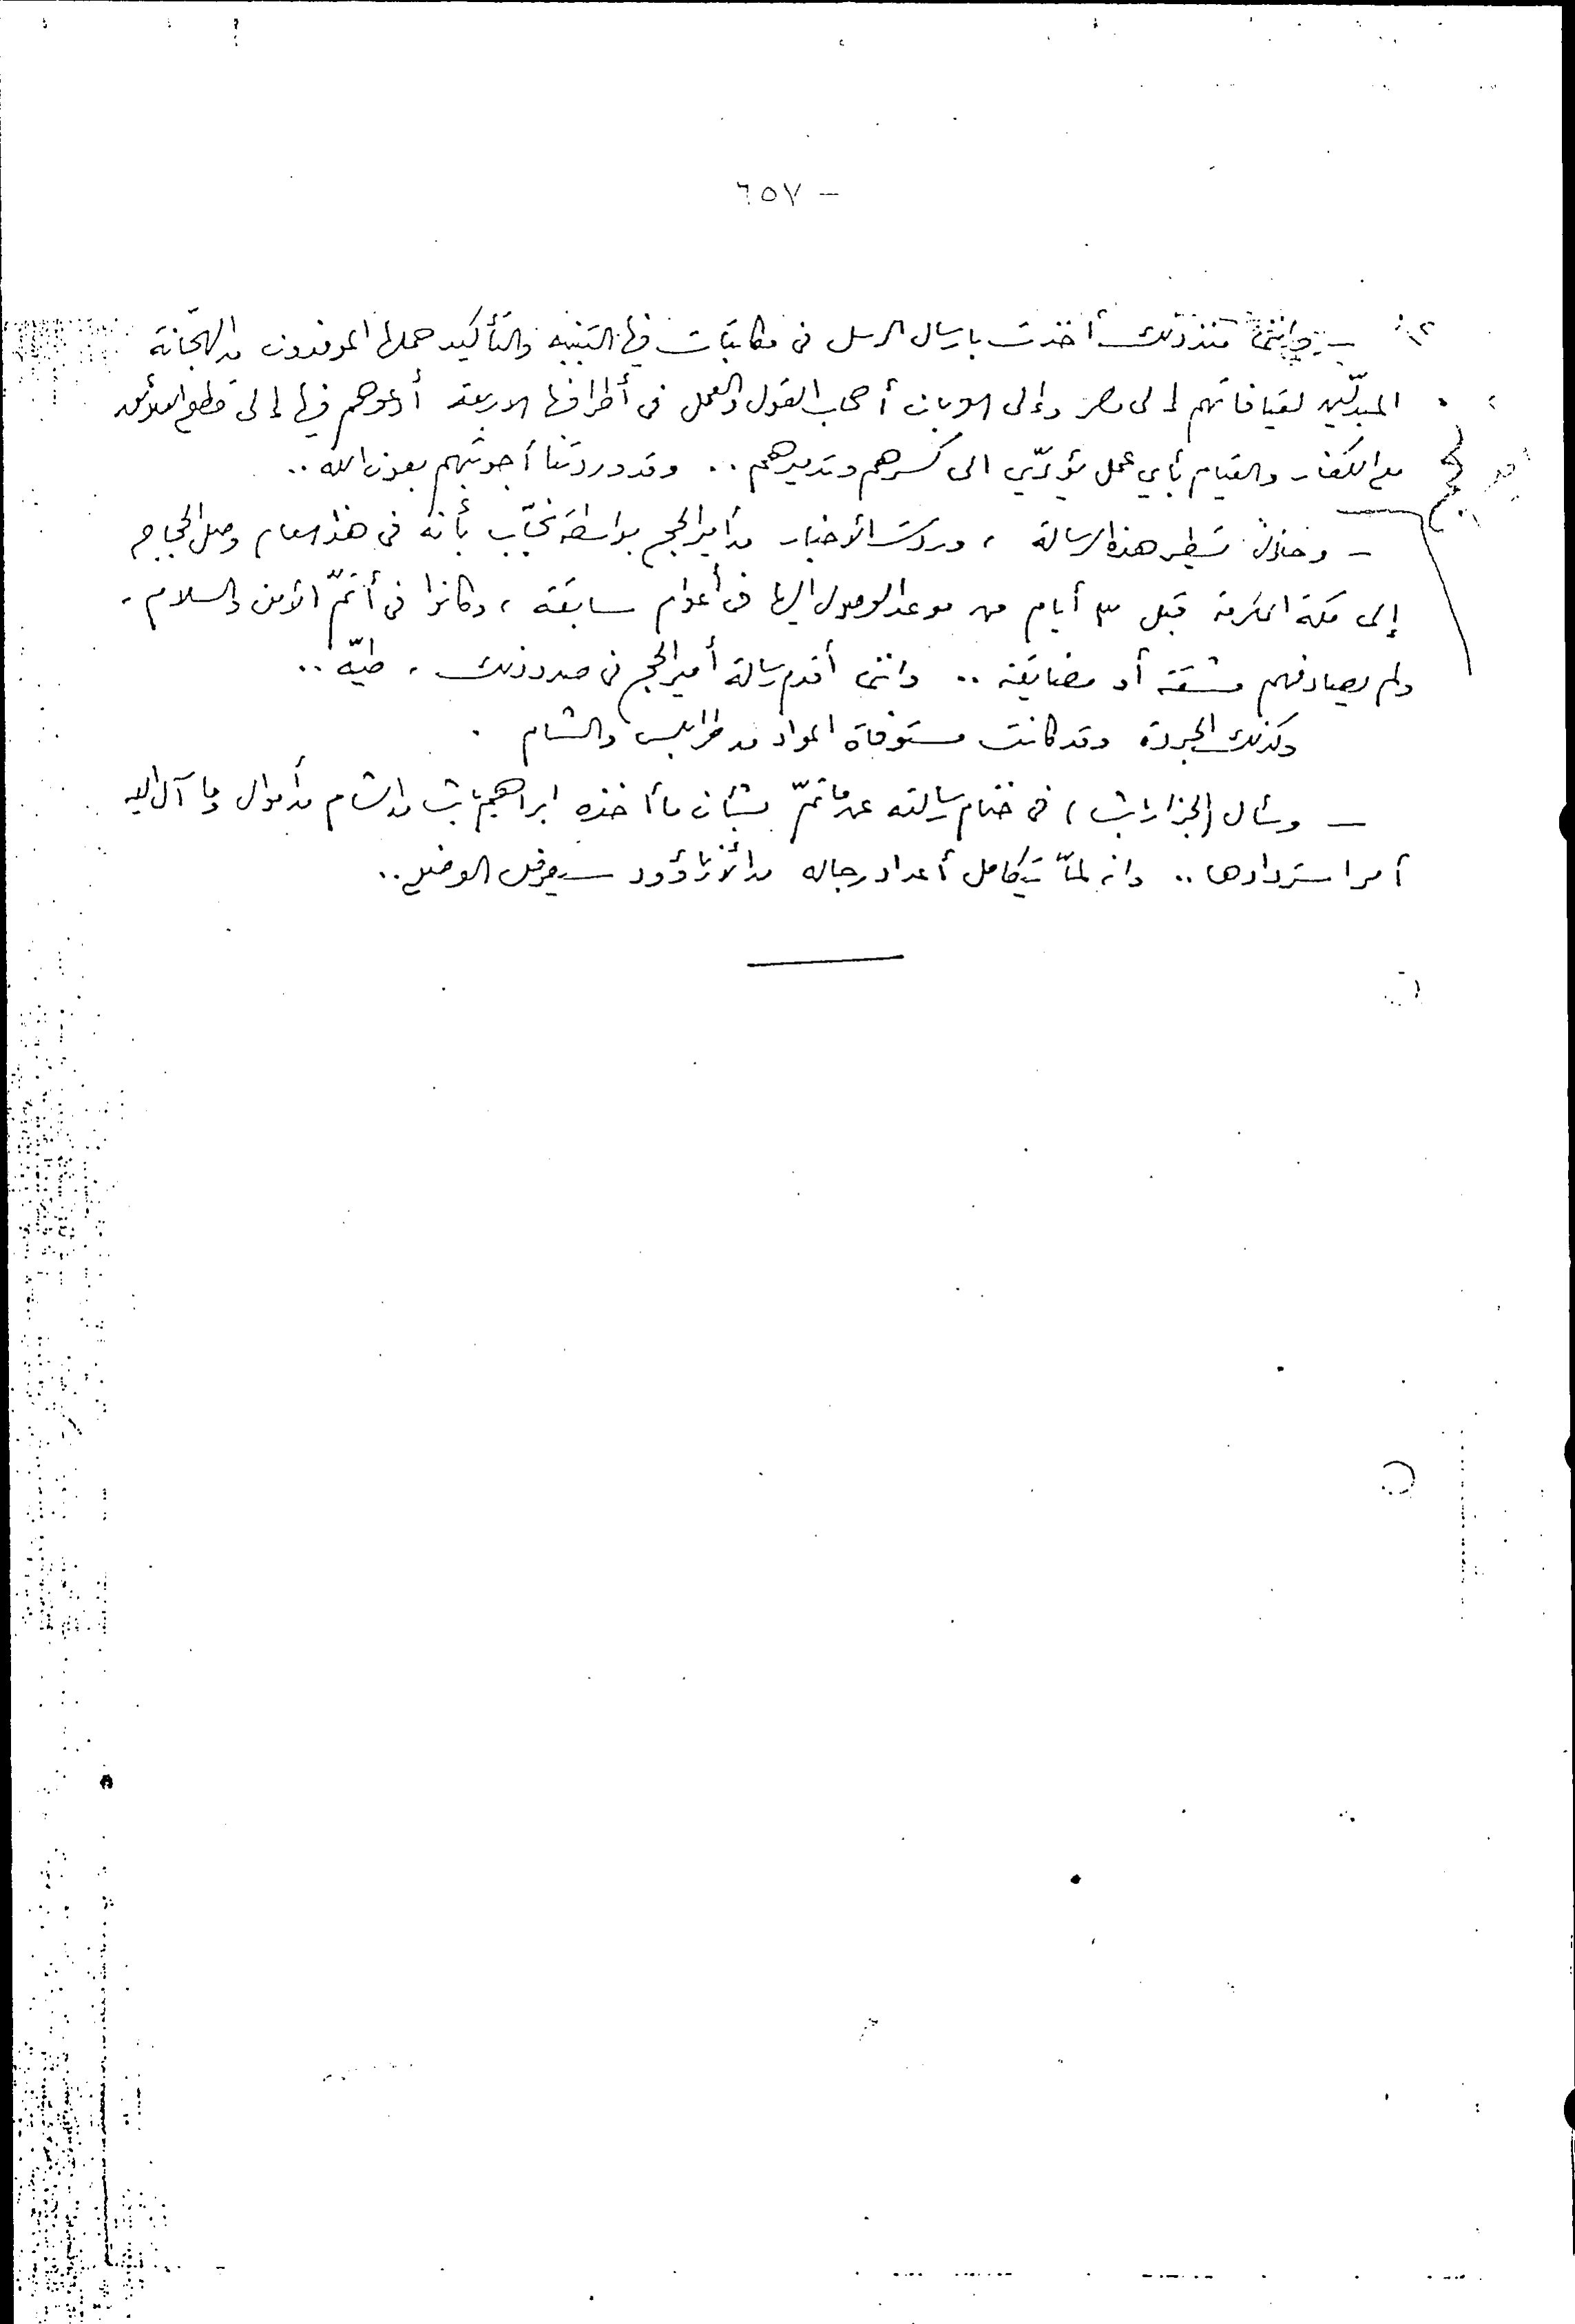 - ٦٥٧
١٢
- وانني منذ ذلك أخذت بارسال الرسل في مكاتبات فيها التنبيه والتأكيد حملها الموفدون من الهجّانة
المبدّلين لقيافاتهم إلى مصر وإلى العربان أصحاب القول والعمل في أطرافها الاربعة أدعوهم فيها إلى قطع العلائق
مع الكفار والقيام بأي عمل يؤدّي الى كسرهم وتدميرهم .. وقد وردتنا أجوبتهم بعون الله ..
- وخلال تسطير هذه الرسالة ، وردت الأخبار من أمير الحج بواسطة نجّاب بأنه في هذا العام وصل الحجاج
إلى مكة المكرمة قبل ٣ أيام من موعد الوصول اليها في أعوام سابقة ، وكانوا في أتمّ الأمن والسلام .
ولم يصادفهم مشقة أو مضايقة .. وانني أقدم رسالة أمير الحج في صدد ذلك . طيّه ..
وكذلك الجردة وقد كانت مستوفاة المواد من طرابلس والشام .
- وسأل (الجزار باشا) في ختام رسالته عن ما تمّ بشأن ما أخذه ابراهيم باشا من الشام من أموال وما آل اليه
أمر استردادها .. وانه لمّا تتكامل أعداد رجاله من الأرناؤود سيعرض الوضع ..